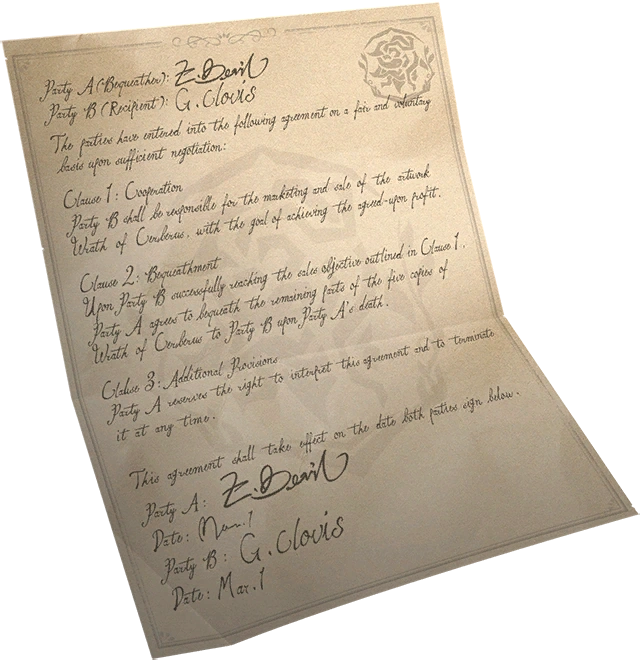 Party A (Bequeather): Z. Devil
Party B (Recipient): G. Clovis
The parties have entered into the following agreement on a fair and voluntary
basis upon sufficient negotiation:
Clause 1: Cooperation
Party B shall be responsible for the marketing and sale of the artwork
Wrath of Cerberus, with the goal of achieving the agreed-upon profit.
Clause 2: Bequeathment
Upon Party B successfully reaching the sales objective outlined in Clause 1,
Party A agrees to bequeath the remaining parts of the five copies of
Wrath of Cerberus to Party B upon Party A's death.
Clause 3: Additional Provisions
Party A reserves the right to interpret this agreement and to terminate
it at any time.
This agreement shall take effect on the date both parties sign below.
Party A: Z. Devil
Date: Mar. 1
Party B: G. Clovis
Date: Mar. 1